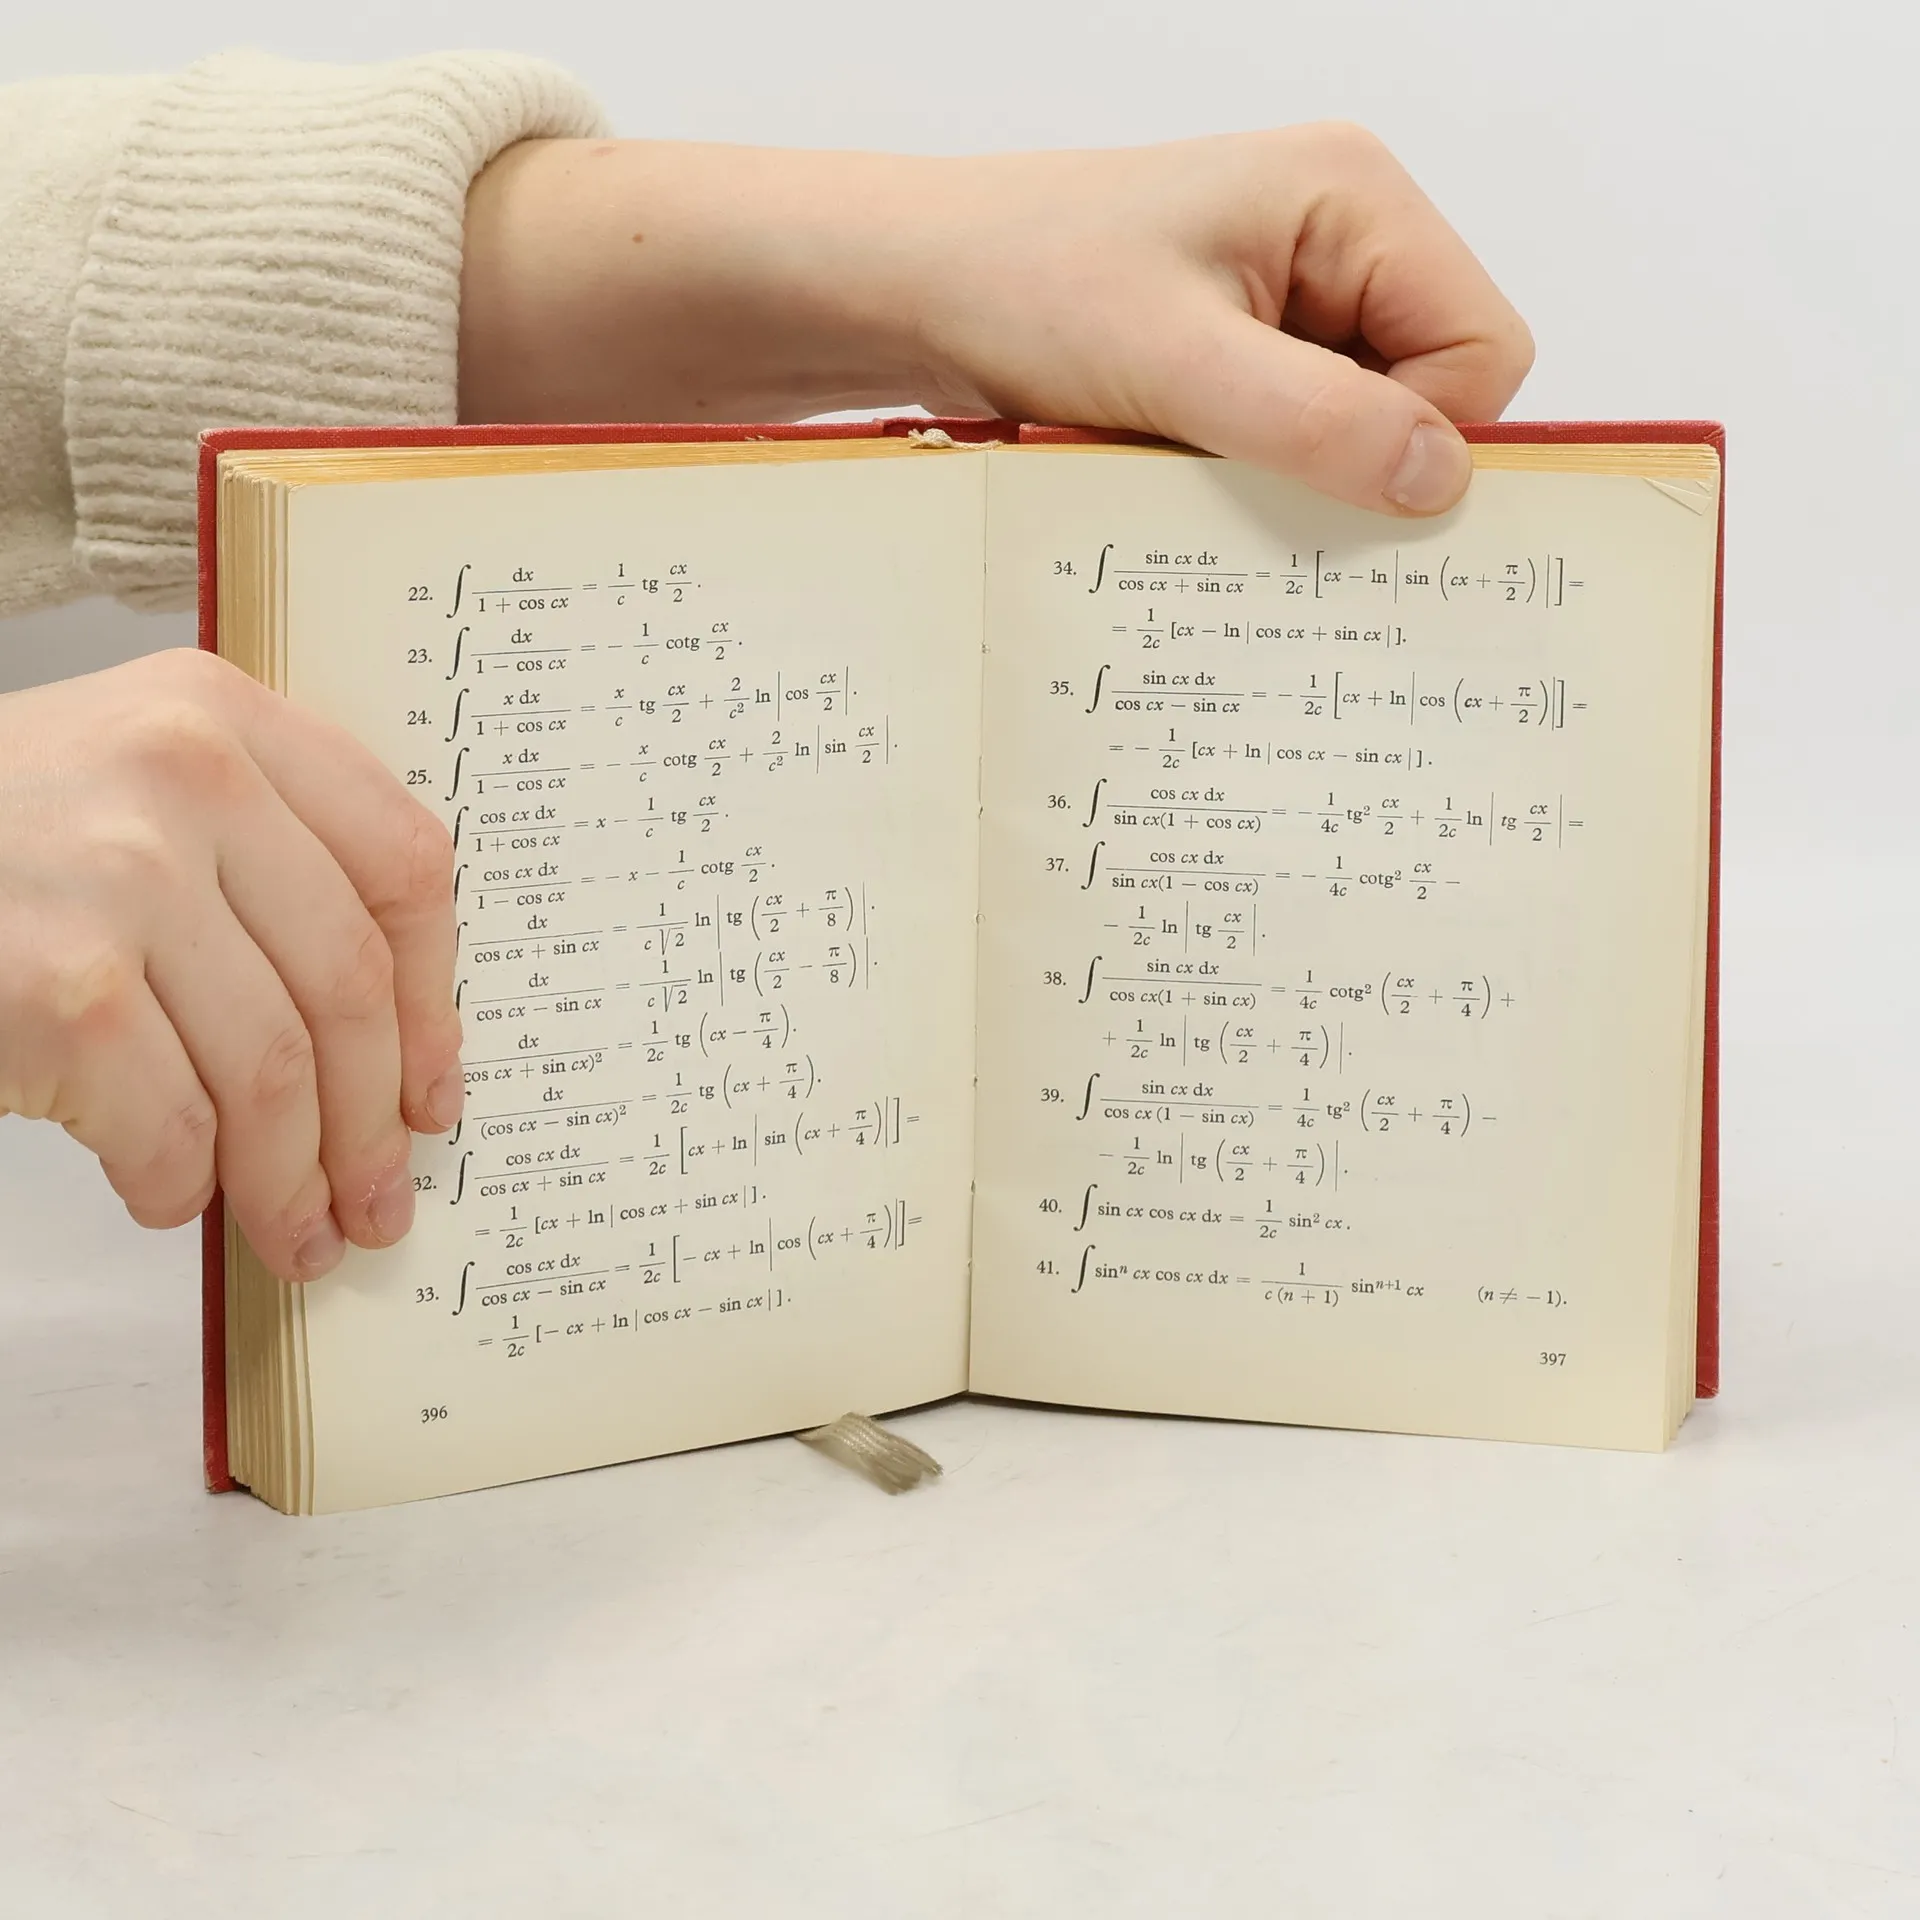 22. ∫ dx / (1 + cos cx) = 1/c tg cx/2 .
23. ∫ dx / (1 − cos cx) = − 1/c cotg cx/2 .
24. ∫ x dx / (1 + cos cx) = x/c tg cx/2 + 2/c² ln | cos cx/2 | .
25. ∫ x dx / (1 − cos cx) = − x/c cotg cx/2 + 2/c² ln | sin cx/2 | .
∫ cos cx dx / (1 + cos cx) = x − 1/c tg cx/2 .
∫ cos cx dx / (1 − cos cx) = − x − 1/c cotg cx/2 .
∫ dx / (cos cx + sin cx) = 1/(c √2) ln | tg (cx/2 + π/8) | .
∫ dx / (cos cx − sin cx) = 1/(c √2) ln | tg (cx/2 − π/8) | .
dx / cos cx + sin cx)² = 1/2c tg (cx − π/4).
∫ dx / (cos cx − sin cx)² = 1/2c tg (cx + π/4).
32. ∫ cos cx dx / (cos cx + sin cx) = 1/2c [cx + ln | sin (cx + π/4) |] =
= 1/2c [cx + ln | cos cx + sin cx | ] .
33. ∫ cos cx dx / (cos cx − sin cx) = 1/2c [− cx + ln | cos (cx + π/4) |] =
= 1/2c [− cx + ln | cos cx − sin cx | ] .
396
34. ∫ sin cx dx / (cos cx + sin cx) = 1/2c [cx − ln | sin (cx + π/2) | ] =
= 1/2c [cx − ln | cos cx + sin cx | ].
35. ∫ sin cx dx / (cos cx − sin cx) = − 1/2c [cx + ln | cos (cx + π/2) |] =
= − 1/2c [cx + ln | cos cx − sin cx | ] .
36. ∫ cos cx dx / (sin cx(1 + cos cx)) = − 1/4c tg² cx/2 + 1/2c ln | tg cx/2 | =
37. ∫ cos cx dx / (sin cx(1 − cos cx)) = − 1/4c cotg² cx/2 −
− 1/2c ln | tg cx/2 | .
38. ∫ sin cx dx / (cos cx(1 + sin cx)) = 1/4c cotg² (cx/2 + π/4) +
+ 1/2c ln | tg (cx/2 + π/4) | .
39. ∫ sin cx dx / (cos cx (1 − sin cx)) = 1/4c tg² (cx/2 + π/4) −
− 1/2c ln | tg (cx/2 + π/4) | .
40. ∫ sin cx cos cx dx = 1/2c sin² cx .
41. ∫ sinⁿ cx cos cx dx = 1/(c (n + 1)) sinⁿ⁺¹ cx (n ≠ − 1).
397